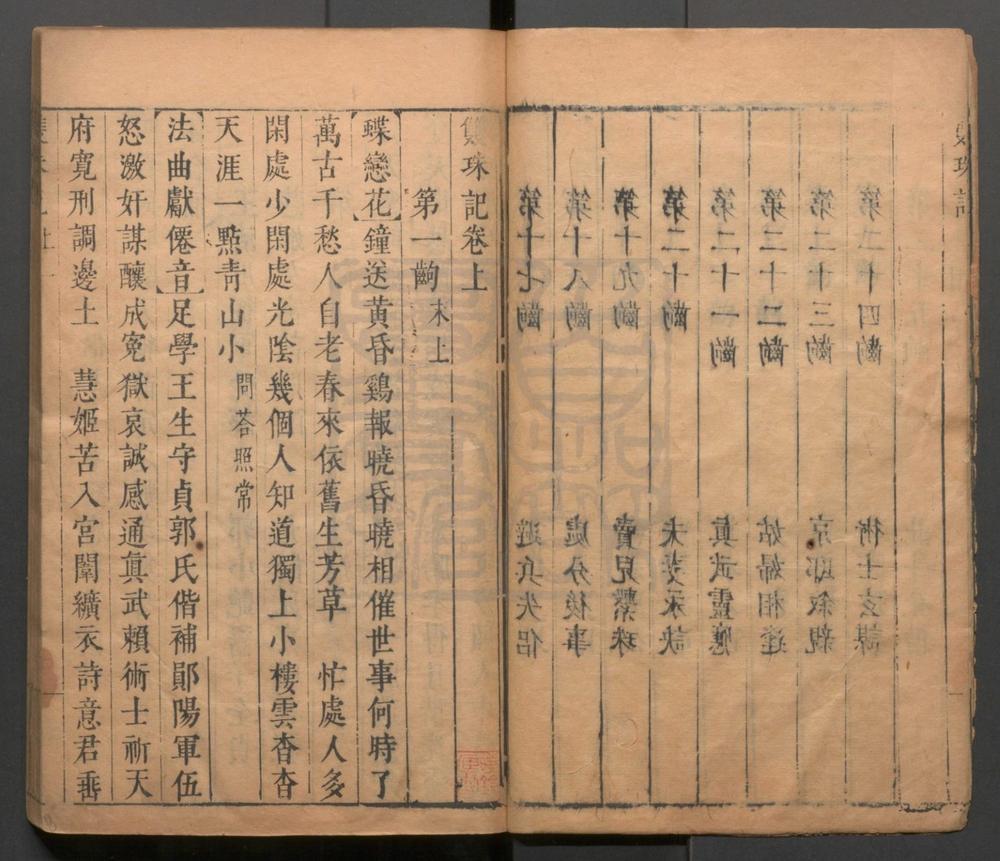 雙珠記
第二十四齣 術士玄謀
第二十三齣 京邸敘親
第二十二齣 姑婦相逢
第二十一齣 眞武靈應
第二十齣 夫妻永訣
第十九齣 賣兒繫珠
第十八齣 處分後事
第十七齣 避兵失侶
雙珠記卷上
第一齣末上
【蝶戀花】鐘送黃昏鷄報曉昏曉相催世事何時了
萬古千愁人自老春來依舊生芳草 忙處人多
閑處少閑處光陰幾個人知道獨上小樓雲杳杳
天涯一點靑山小 問荅照常
【法曲獻僊音】足學王生守貞郭氏偕補鄖陽軍伍
怒激奸謀釀成寃獄哀誠感通眞武賴術士祈天
府寬刑調邊土 慧姬苦入宮闈纊衣詩意君垂